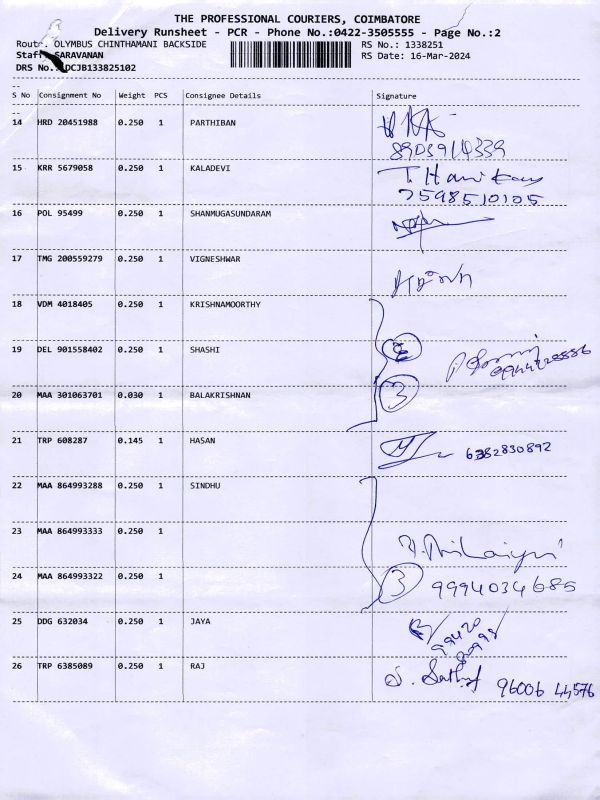 THE PROFESSIONAL COURIERS, COIMBATORE
Delivery Runsheet - PCR - Phone No.:0422-3505555 - Page No.:2
Route. OLYMBUS CHINTHAMANI BACKSIDE RS No.: 1338251
Staff SARAVANAN RS Date: 16-Mar-2024
DRS No. DCJB133825102
S No Consignment No Weight PCS Consignee Details Signature
14 HRD 20451988 0.250 1 PARTHIBAN
8903914339
15 KRR 5679058 0.250 1 KALADEVI
7598510105
16 POL 95499 0.250 1 SHANMUGASUNDARAM
17 TMG 200559279 0.250 1 VIGNESHWAR
18 VDM 4018405 0.250 1 KRISHNAMOORTHY
19 DEL 901558402 0.250 1 SHASHI
20 MAA 301063701 0.030 1 BALAKRISHNAN 3
21 TRP 608287 0.145 1 HASAN 6382830892
22 MAA 864993288 0.250 1 SINDHU
23 MAA 864993333 0.250 1
24 MAA 864993322 0.250 1 3 9994034685
25 DDG 632034 0.250 1 JAYA 99420
26 TRP 6385089 0.250 1 RAJ 96006 44576